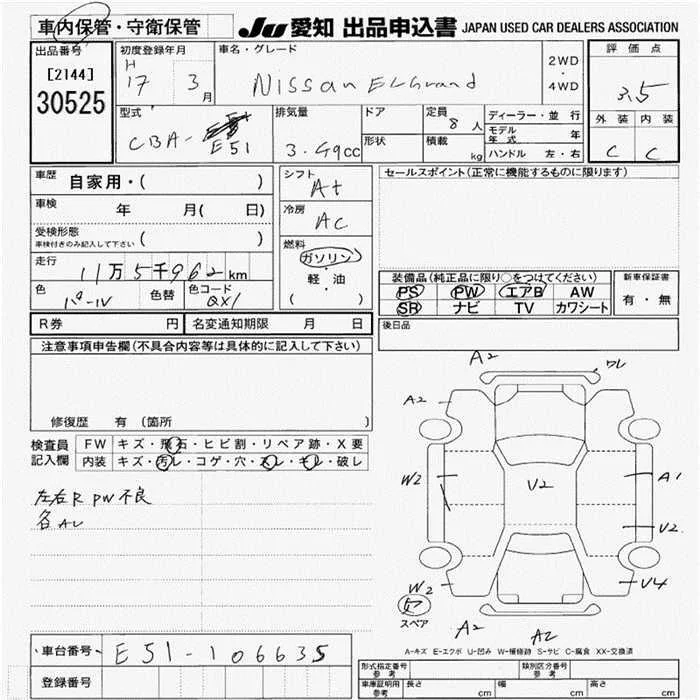 車内保管・守衛保管
JU 愛知 出品申込書 JAPAN USED CAR DEALERS ASSOCIATION
出品番号
[2144]
30525
初度登録年月
H 17 3月
車名・グレード
Nissan ELGrand
2WD
・
4WD
評価点
3.5
外装 内装
C C
型式
CBA-E51
排気量
3.49cc
ドア
形状
定員
8人
積載
kg
ディーラー・並行
モデル年式 年
ハンドル 左・右
車歴 自家用・( )
車検 年 月( 日)
受検形態
車検付きのみ記入して下さい ( )
走行 11万5千962km
色 パール 色替 色コード QX1
R券 円 名変通知期限 月 日
シフト
At
冷房
AC
燃料
ガソリン
軽・油
( ・ )
セールスポイント(正常に機能するものに限ります)
装備品(純正品に限り○をつけてください)
PS PW エアB AW
SR ナビ TV カワシート
新車保証書
有・無
後日品
注意事項申告欄(不具合内容等は具体的に記入して下さい)
修復歴 有 (箇所 )
検査員記入欄
FW キズ・飛石・ヒビ割・リペア跡・X要
内装 キズ・汚レ・コゲ・穴・スレ・キレ・破レ
左右R PW不良
各AU
A2
ワレ
A2
W2
U2
A1
U2
W2
U4
スペア
A2
A2
A-キズ E-エクボ U-凹み W-補修跡 S-サビ C-腐食 XX-交換済
車台番号 E51-106635
登録番号
形式指定番号 参考
類別区分番号 参考
車庫証明用 参考 長さ cm 幅 cm 高さ cm